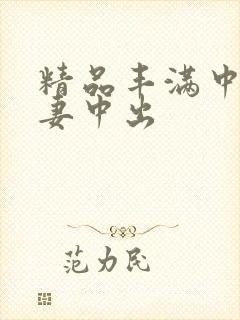 精品丰满中
妻中出
范力民